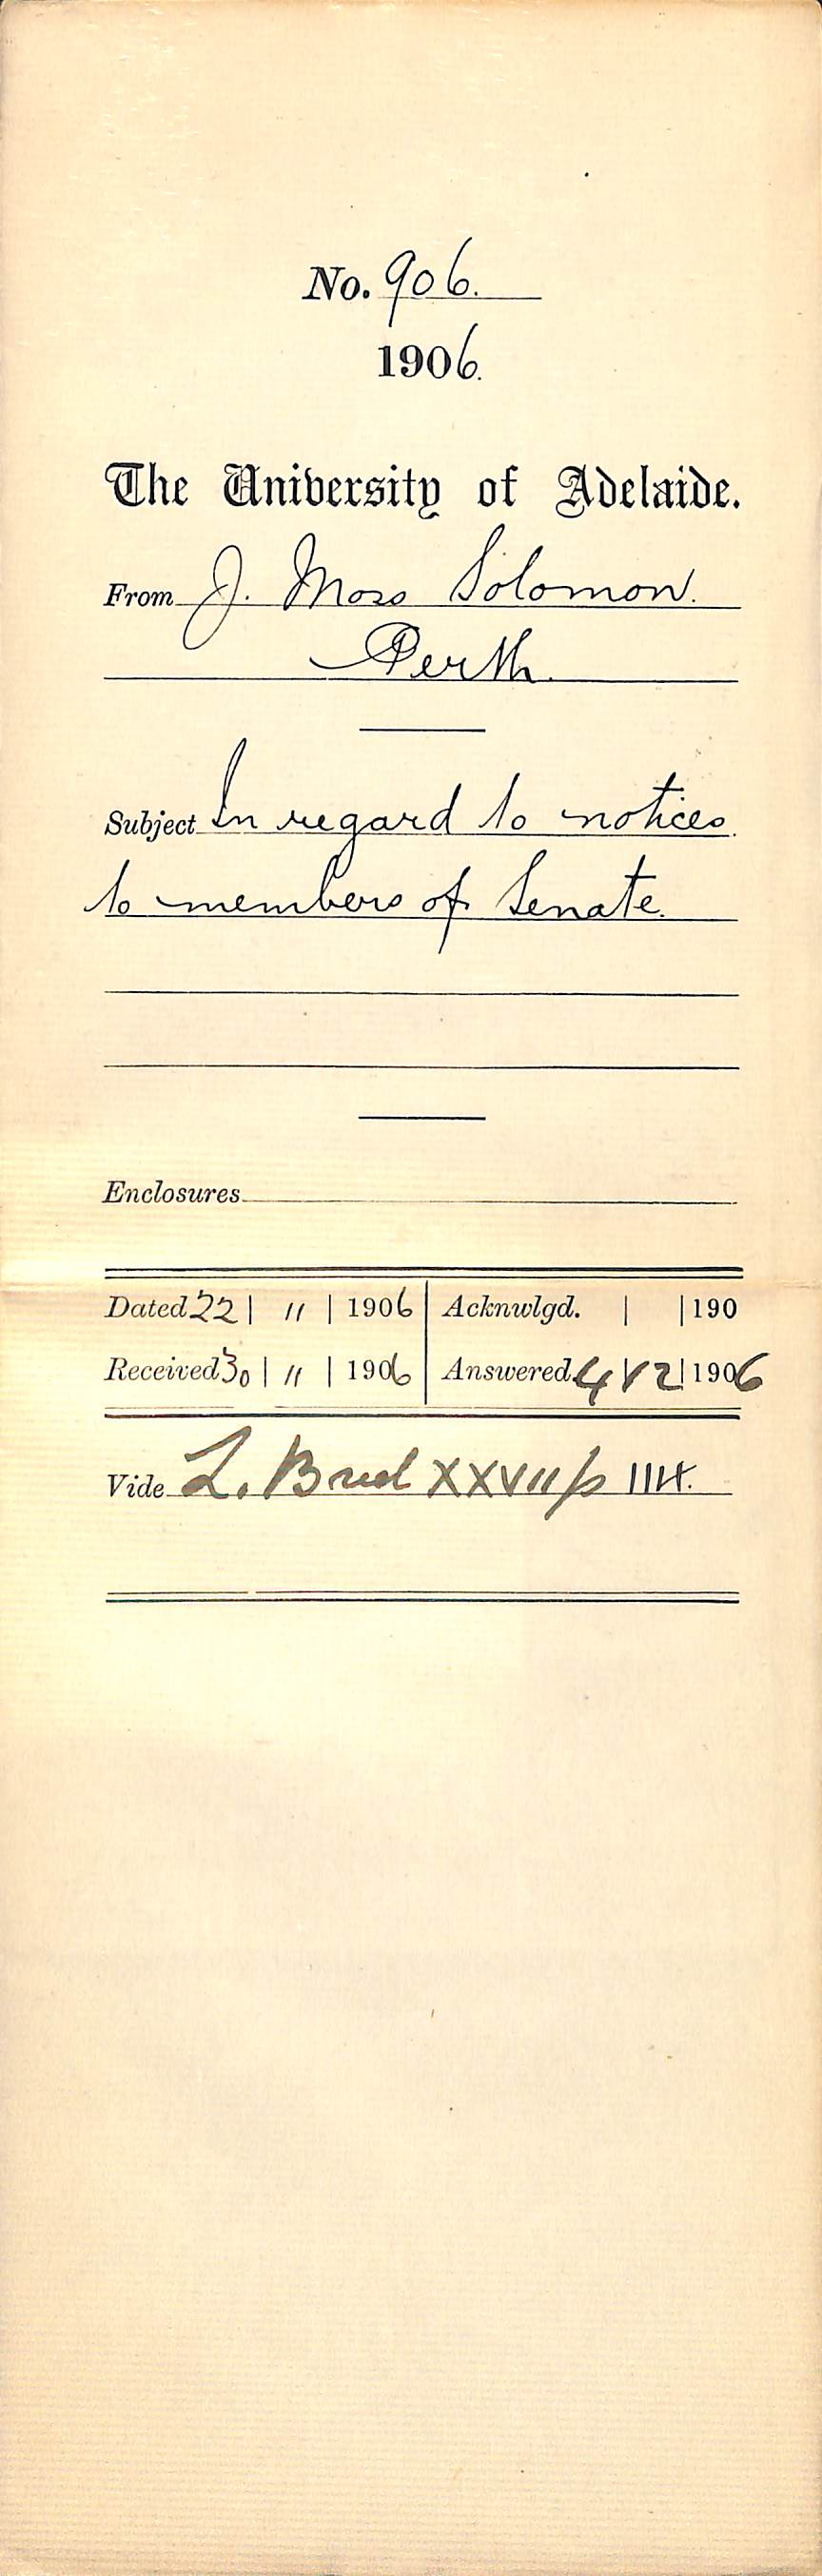 No. 906.
1906.
The University of Adelaide.
From J. Moss Solomon.
Perth.
Subject In regard to notices
to members of Senate.
Enclosures
Dated 22 | 11 | 1906 | Acknwlgd. | | 190
Received 30 | 11 | 1906 | Answered 4 | 12 | 1906
Vide L. XXVII p 1114.